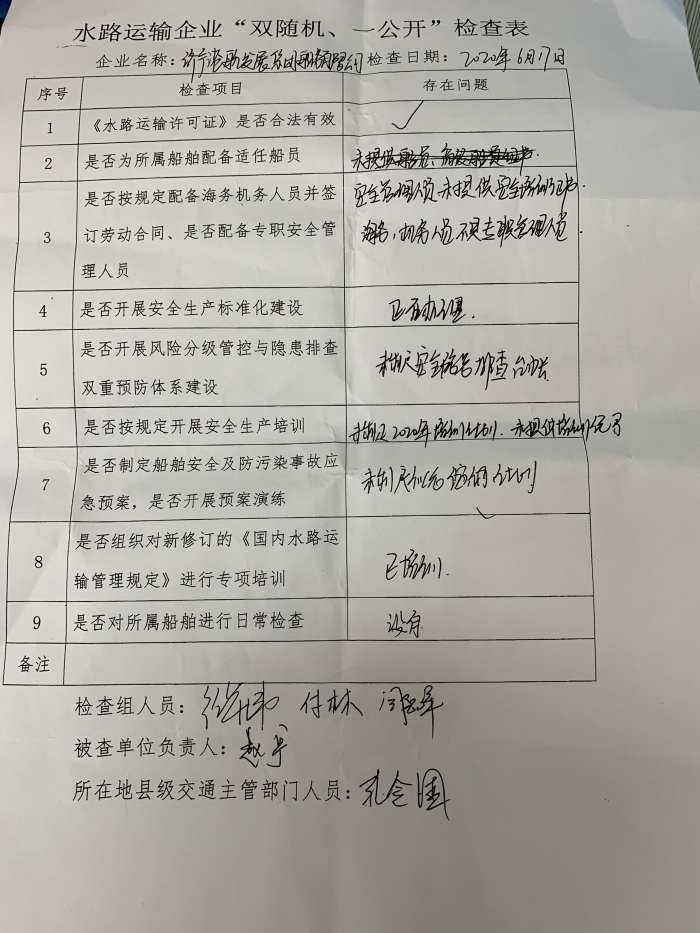 水路运输企业“双随机、一公开”检查表
企业名称：济宁港航发展集团船舶有限公司 检查日期：2020年6月17日
序号 检查项目 存在问题
1 《水路运输许可证》是否合法有效 ✓
2 是否为所属船舶配备适任船员 未提供船员
3 是否按规定配备海务机务人员并签
订劳动合同、是否配备专职安全管
理人员
安全管理人员未提供安全培训证书.
海务，机务人员不是专职管理人员.
4 是否开展安全生产标准化建设 正在办理.
5 是否开展风险分级管控与隐患排查
双重预防体系建设
安全隐患排查台账
6 是否按规定开展安全生产培训 未制定2020年培训计划. 未提供培训记录
7 是否制定船舶安全及防污染事故应
急预案，是否开展预案演练
未制定应急演练计划
✓
8 是否组织对新修订的《国内水路运
输管理规定》进行专项培训
已培训.
9 是否对所属船舶进行日常检查 没有
备注
检查组人员： 付林
被查单位负责人：
所在地县级交通主管部门人员：孔令